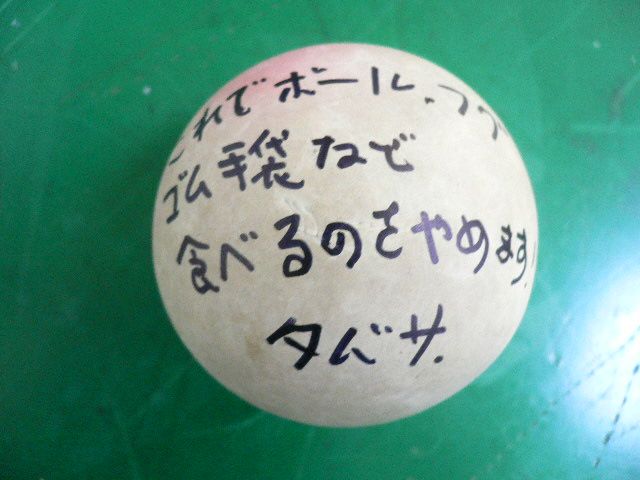 これでボール、フグ
ゴム手袋など
食べるのをやめます。
タバサ.